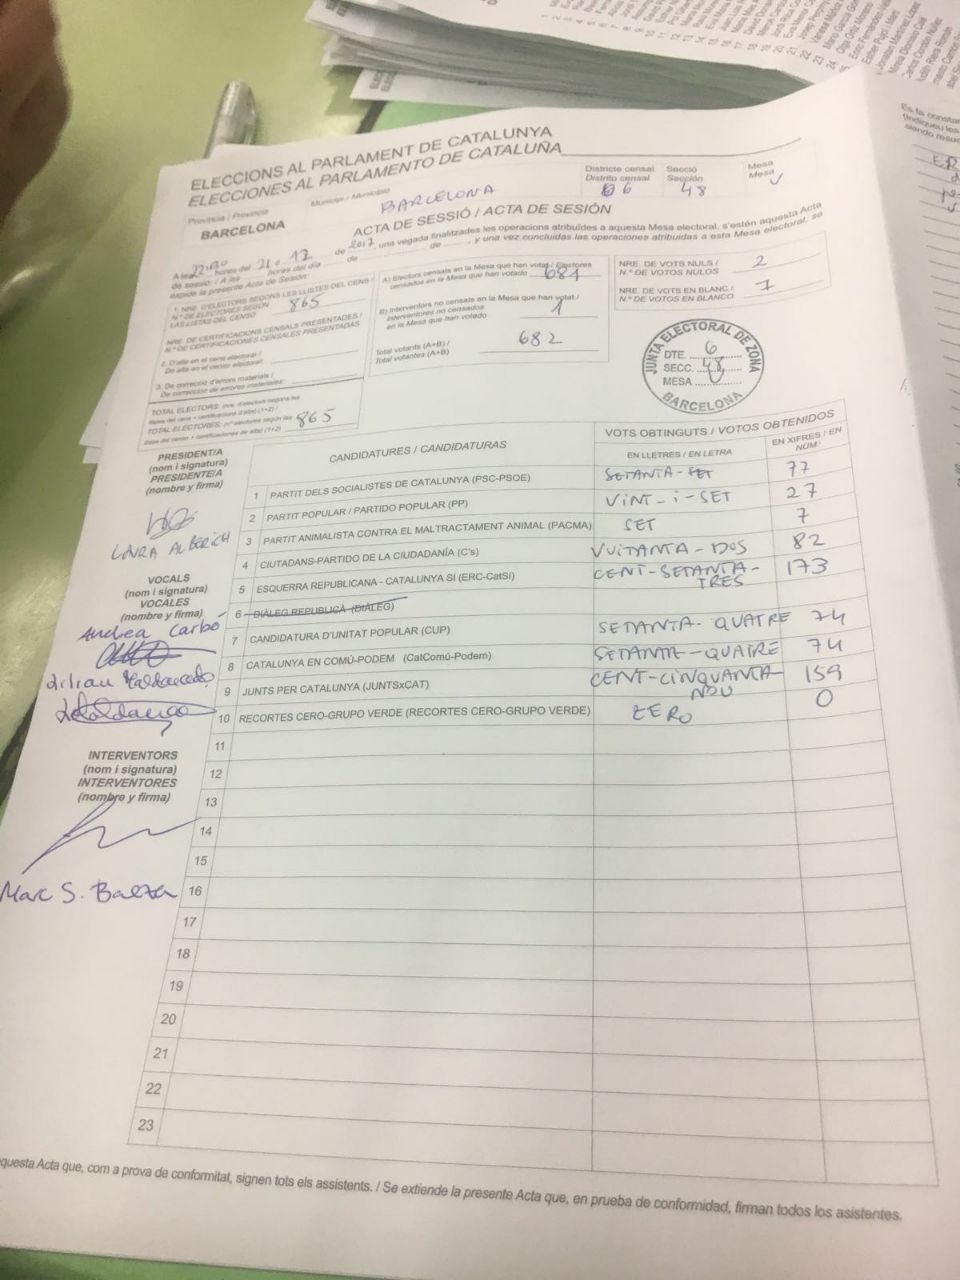 ELECCIONS AL PARLAMENT DE CATALUNYA
ELECCIONES AL PARLAMENTO DE CATALUÑA
Província / Provincia
BARCELONA
Municipi / Municipio
BARCELONA
Districte censal
Distrito censal
06
Secció
Sección
48
Mesa
Mesa
U
ACTA DE SESSIÓ / ACTA DE SESIÓN
hores del 21 de 12 de 2017 una vegada finalitzades les operacions atribuïdes a aquesta Mesa electoral, s'estén aquesta Acta
de sessió. / A las horas del día de de y una vez concluidas las operaciones atribuidas a esta Mesa electoral, se
expide la presente Acta de Sesión:
1. NRE. D'ELECTORS SEGONS LES LLISTES DEL CENS /
N.º DE ELECTORES SEGÚN
LAS LISTAS DEL CENSO
865
NRE. DE CERTIFICACIONS CENSALS PRESENTADES /
N.º DE CERTIFICACIONES CENSALES PRESENTADAS
2. D'alta en el cens electoral /
De alta en el censo electoral:
3. De correcció d'errors materials /
De corrección de errores materiales:
TOTAL ELECTORS: (nre. d'electors segons les
llistes del cens + certificacions d'alta) (1+2) /
TOTAL ELECTORES: (nº electores según las
listas del censo + certificaciones de alta) (1+2)
865
A) Electors censats en la Mesa que han votat / Electores
censados en la Mesa que han votado
681
B) Interventors no censats en la Mesa que han votat /
Interventores no censados
en la Mesa que han votado
1
Total votants (A+B) /
Total votantes (A+B)
682
NRE. DE VOTS NULS /
N.º DE VOTOS NULOS
2
NRE. DE VOTS EN BLANC /
N.º DE VOTOS EN BLANCO
7
JUNTA ELECTORAL DE ZONA
DTE. 6
SECC. 48
MESA U
BARCELONA
PRESIDENT/A
(nom i signatura)
PRESIDENTE/A
(nombre y firma)
LAURA ALBERICH
VOCALS
(nom i signatura)
VOCALES
(nombre y firma)
Andrea Carbó
Lilian Maldonado
INTERVENTORS
(nom i signatura)
INTERVENTORES
(nombre y firma)
Marc S. Baeza
CANDIDATURES / CANDIDATURAS
VOTS OBTINGUTS / VOTOS OBTENIDOS
EN LLETRES / EN LETRA
EN XIFRES / EN NÚM.
1 PARTIT DELS SOCIALISTES DE CATALUNYA (PSC-PSOE) SETANTA-SET 77
2 PARTIT POPULAR / PARTIDO POPULAR (PP) VINT-I-SET 27
3 PARTIT ANIMALISTA CONTRA EL MALTRACTAMENT ANIMAL (PACMA) SET 7
4 CIUTADANS-PARTIDO DE LA CIUDADANÍA (C's) VUITANTA-DOS 82
5 ESQUERRA REPUBLICANA - CATALUNYA SI (ERC-CatSí) CENT-SETANTA-TRES 173
6 DIÀLEG REPUBLICÀ (DIÀLEG)
7 CANDIDATURA D'UNITAT POPULAR (CUP) SETANTA-QUATRE 74
8 CATALUNYA EN COMÚ-PODEM (CatComú-Podem) SETANTA-QUATRE 74
9 JUNTS PER CATALUNYA (JUNTSxCAT) CENT-CINQUANTA-NOU 159
10 RECORTES CERO-GRUPO VERDE (RECORTES CERO-GRUPO VERDE) ZERO 0
11
12
13
14
15
16
17
18
19
20
21
22
23
questa Acta que, com a prova de conformitat, signen tots els assistents. / Se extiende la presente Acta que, en prueba de conformidad, firman todos los asistentes.